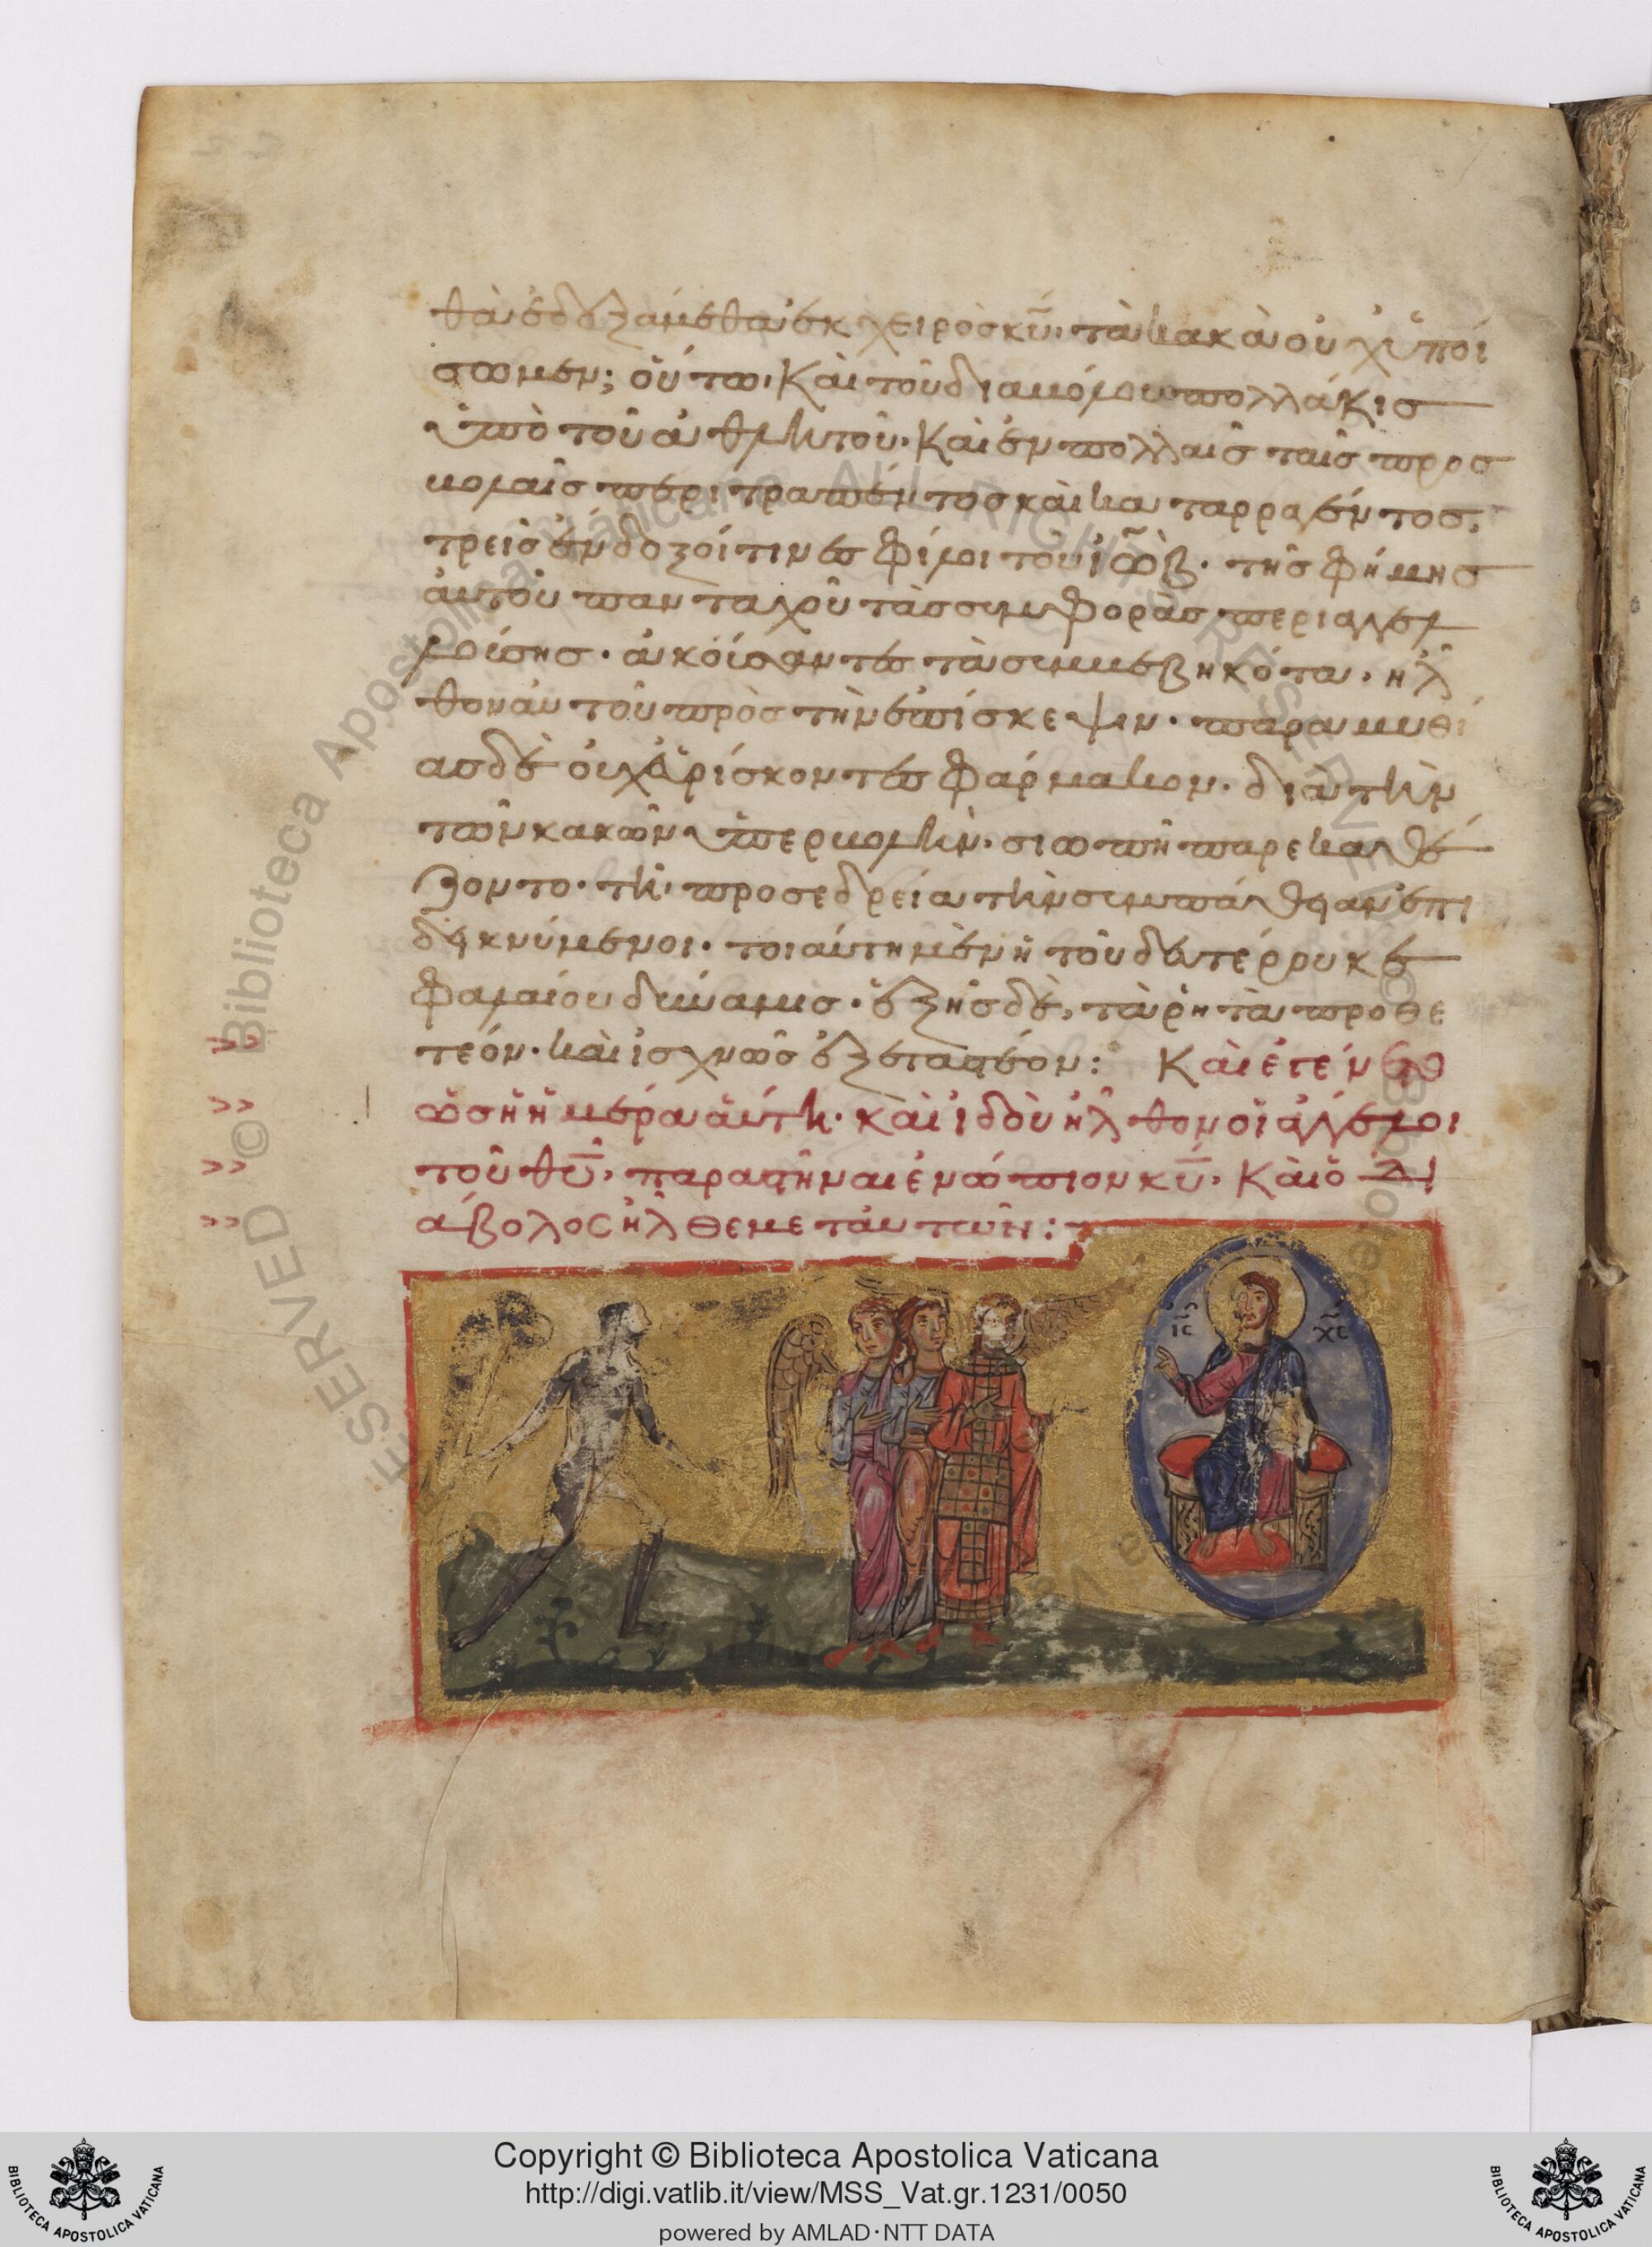 θὰ ἐδεξάμεθα ἐκ χειρὸς κ̅υ̅· τὰ κακὰ οὐχ ὑποί
σωμεν; οὕτω· Καὶ τοῦ διαβόλου πολλάκις
ὑπὸ τοῦ ἀθλητοῦ· Καὶ ἐν πολλαῖς ταῖς προσ
βολαῖς περιτραπέντος καὶ καταρραγέντος,
τρεῖς ἔνδοξοί τινες φίλοι τοῦ ἰὼβ· τῆς φήμης
αὐτοῦ πανταχοῦ τὰς συμφορὰς περιαγγελ
λούσης· ἀκούσαντες τὰ συμβεβηκότα· ἦλ
θον αὐτοῦ πρὸς τὴν ἐπίσκεψιν· παραμυθί
ας δὲ οὐχ εὑρίσκοντες φάρμακον· διὰ τὴν
τῶν κακῶν ὑπερβολὴν· σιωπῆ παρεκαθέ
ζοντο· τῆ προσεδρεία τὴν συμπάθειαν ἐπι
δεικνύμενοι· τοιαύτη μὲν ἡ τοῦ δευτέρου κε
φαλαίου δύναμις· ἑξῆς δὲ, τὰ ῥητὰ προθε
τέον· καὶ ἰσχνῶς ἐξεταστέον: Καὶ ἐγένετο
ὡς ἡ ἡμέρα αὕτη· καὶ ἰδοὺ ἦλθον οἱ ἄγγελοι
τοῦ θ̅υ̅, παραστῆναι ἐνώπιον κ̅υ̅· Καὶ ὁ δι
άβολος ἦλθε μετ' αὐτῶν:
ι̅ς̅ χ̅ς̅
Copyright © Biblioteca Apostolica Vaticana
http://digi.vatlib.it/view/MSS_Vat.gr.1231/0050
powered by AMLAD·NTT DATA
BIBLIOTECA APOSTOLICA VATICANA
BIBLIOTECA APOSTOLICA VATICANA